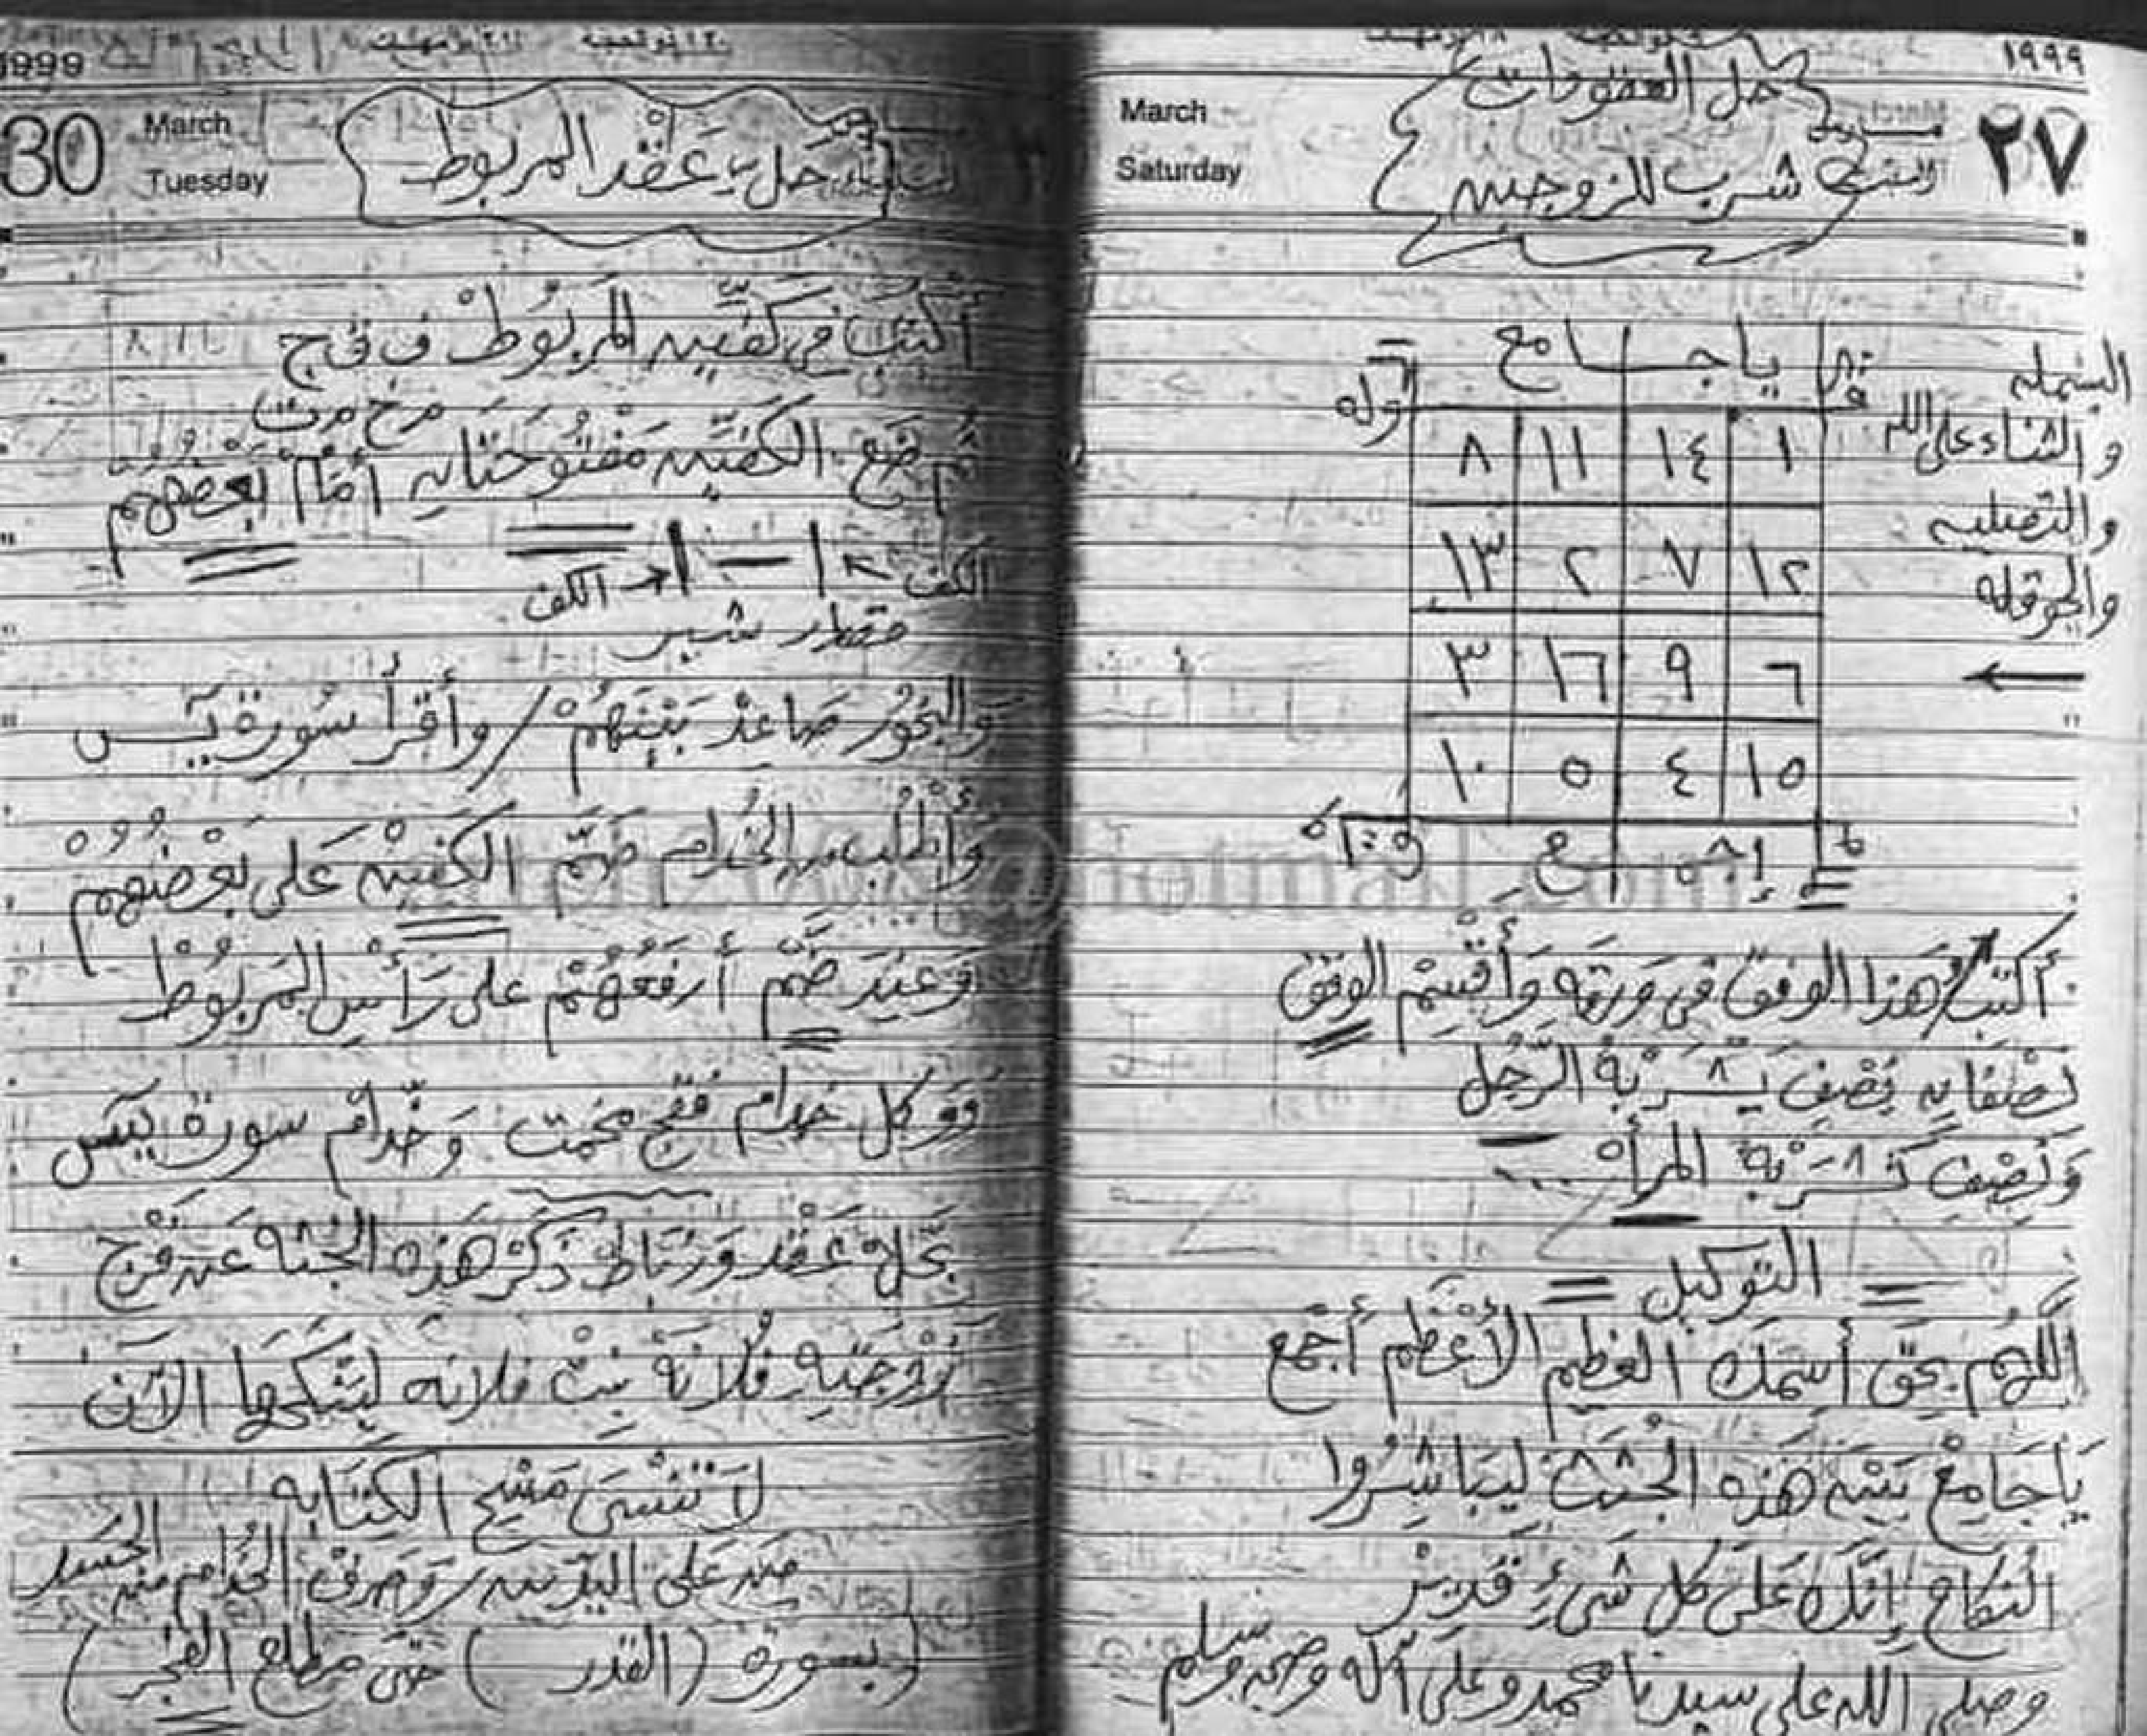 ١٩٩٩
٢٧
March
Saturday
حل المعقودات
شرب للزوجين
البسمله
والثناء على الله
والتصليه
والحوقله
يا جامع
وله
١ ١٤ ١١ ٨
١٢ ٧ ٢ ١٣
٦ ٩ ١٦ ٣
١٥ ٤ ٥ ١٠
أكتب هذا الوفق في ورقه وأقسم الوفق
نصفان نصف يشربه الرجل
ونصف تشربه المرأه
= التوكيل =
اللهم بحق أسمك العظيم الأعظم أجمع
يا جامع بين هذه الجثث ليباشروا
النكاح إنك على كل شيء قدير
وصلى الله على سيدنا محمد وعلى آله وصحبه وسلم
1999
30
March
Tuesday
حل عقد المربوط
أكتب في كفين المربوط ف ق ج
م خ م ت
ثم ضع الكفين مفتوحتان أمام بعضهم
الكف ← ا — ا → الكف
مقدار شبر
والبخور صاعد بينهم / وأقرأ سورة يس
وأطلب من الخدام ضم الكفين على بعضهم
وعند ضم أرفعهم على رأس المربوط
ووكل خدام فقج مخمت وخدام سورة يس
بحل عقد ورباط ذكر هذه الجثه عن فرج
زوجته فلانه بنت فلانه لينكحها الآن
لا تنسى مسح الكتابه
من على اليدين وصرف الخدام من الجسد
(بسورة (القدر) حتى مطلع الفجر)